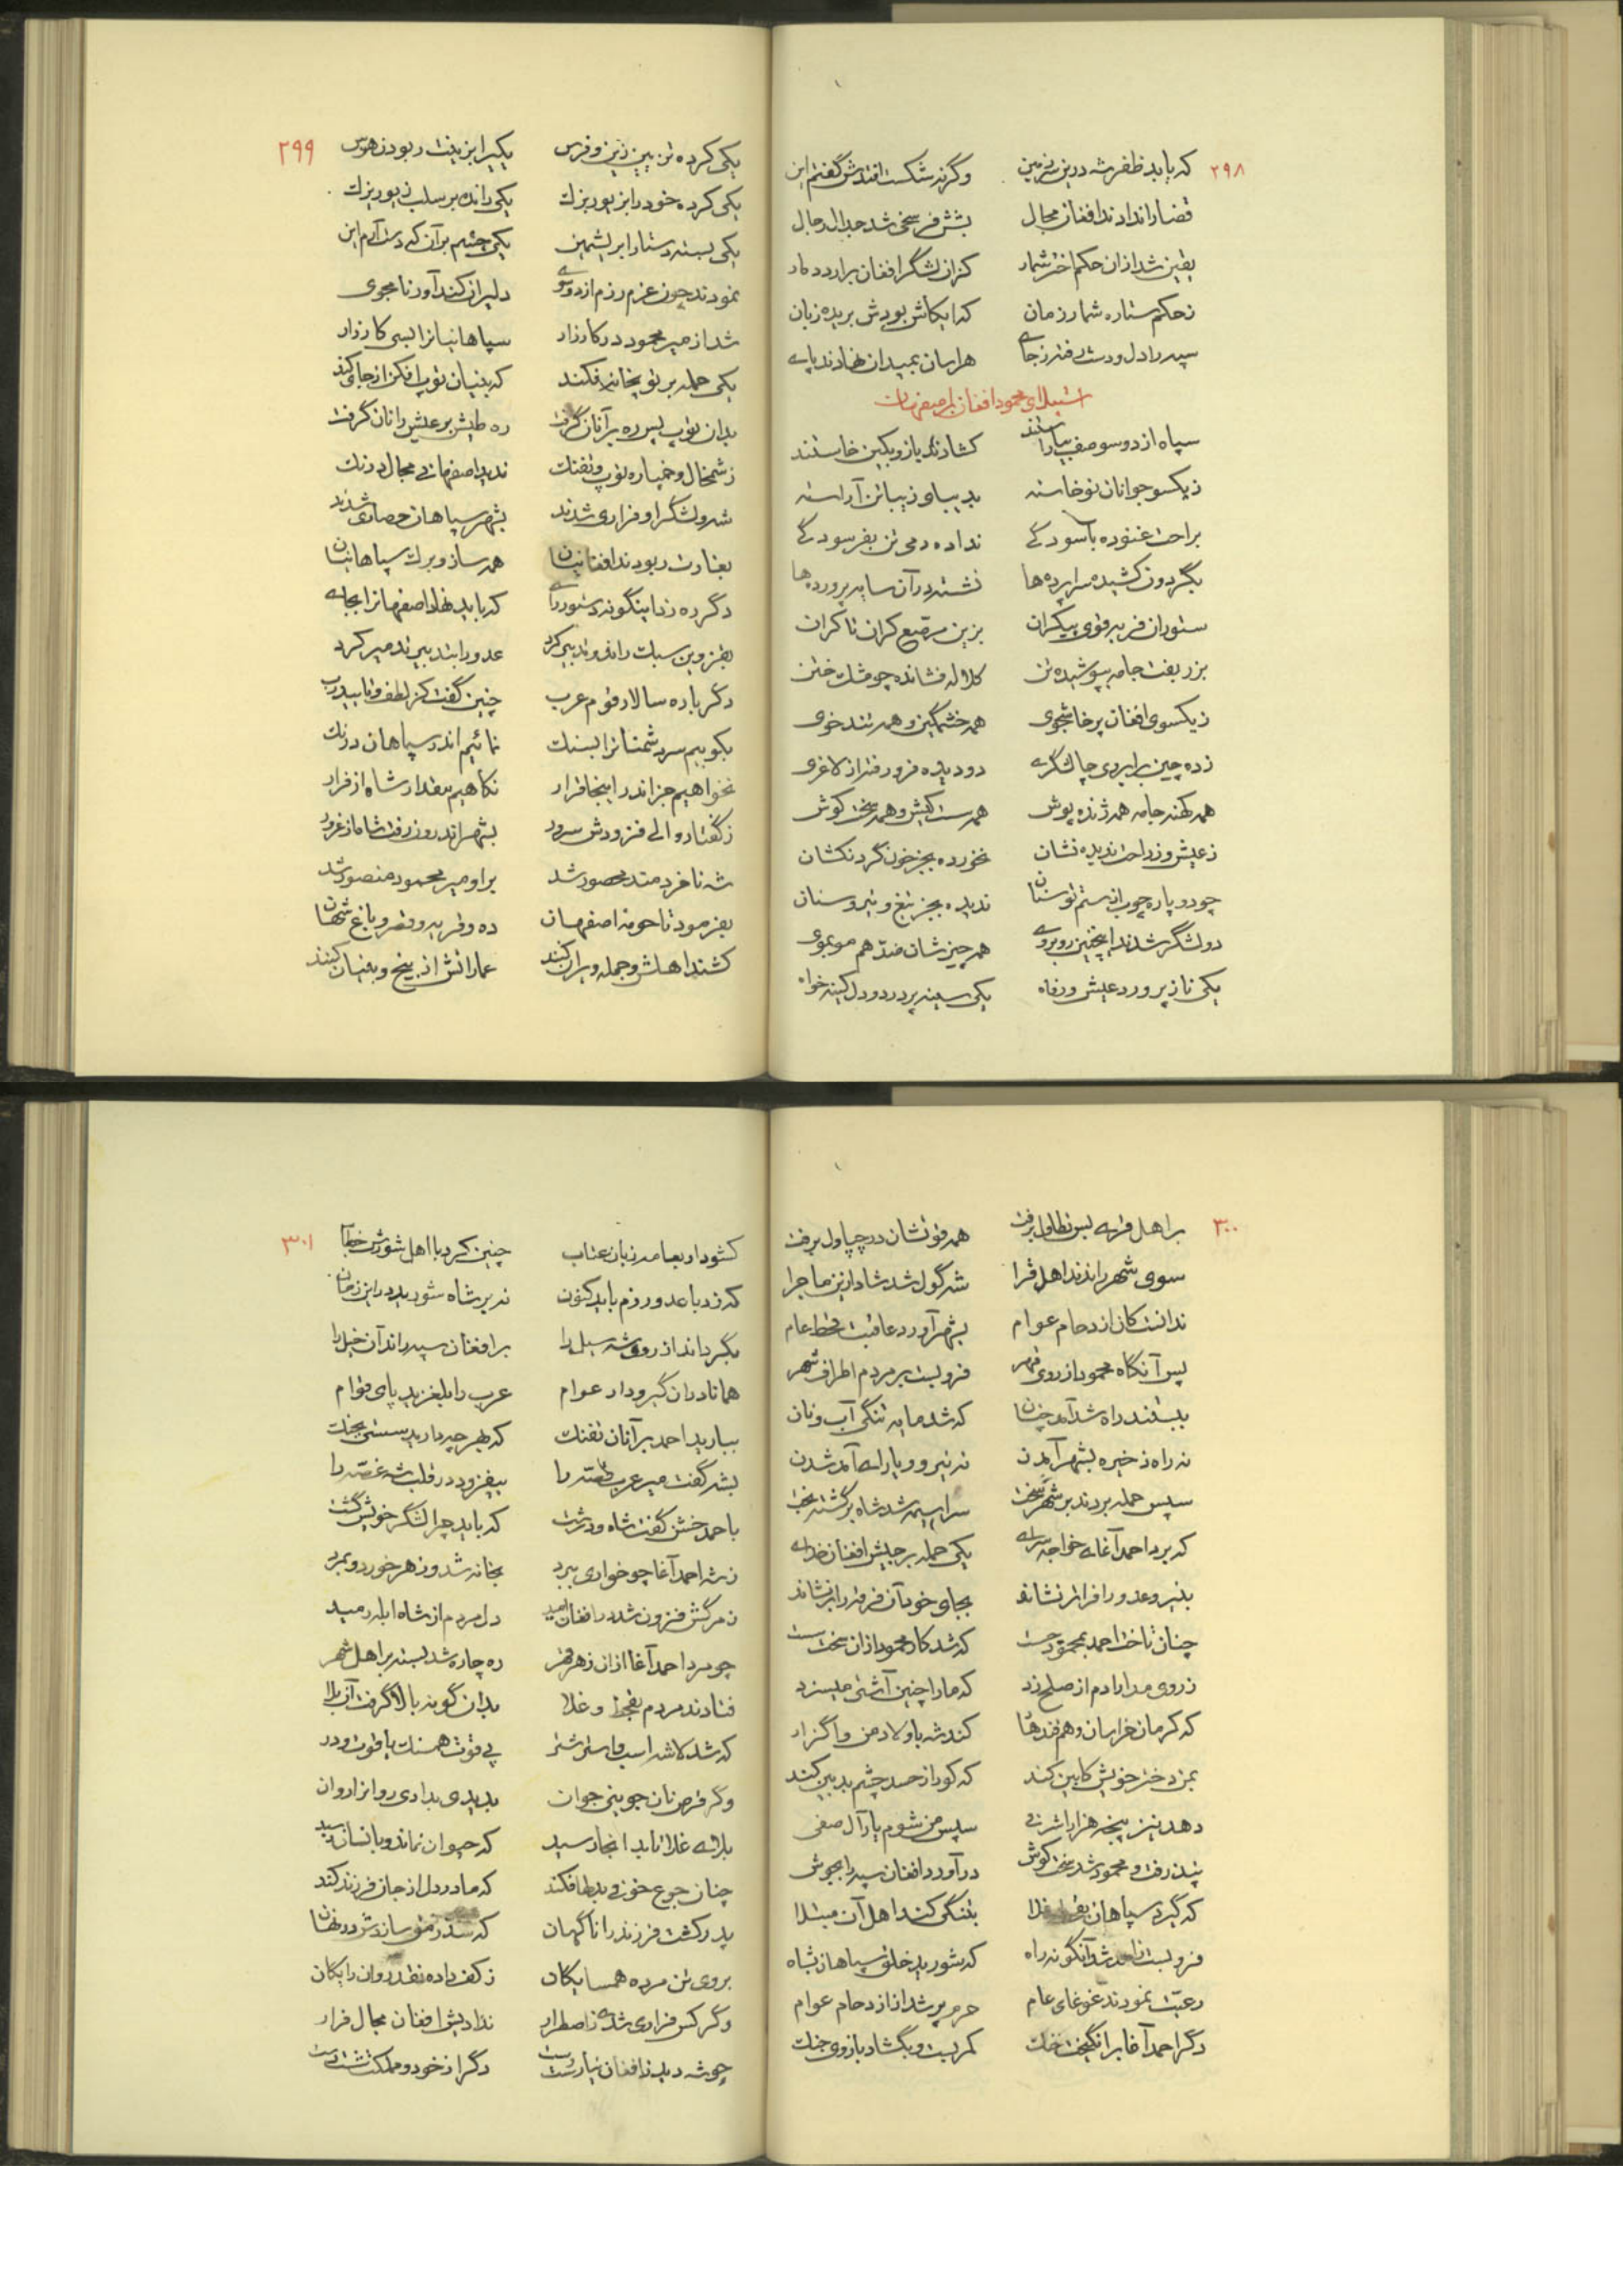 ۲۹۸
که باید ظفر شه درین سرزمین وگرنه شکست افتدش گفتم این
قضا را ندادند افغان مجال بشش فرسخی شد جدال و جبال
یقین شد ازان حکم اختر شمار کزان لشگر افغان برارد دمار
ز حکم ستاره شمار زمان که ایکاش بودش بریده زبان
سپه را دل و دست رفته ز جای هراسان بمیدان نهادند پای
استیلای محمود افغان باصفهان
سپاه از دو سو صف بیاراستند گشادند بازو بکین خاستند
ز یکسو جوانان نوخاسته بدیبا و زیبا تن آراسته
براحت غنوده بآسودگی نداده دمی تن بفرسودگی
بگردون کشیده سراپرده‌ها نشسته در آن سایه پرورده‌ها
ستوران فربه قوی پیکران بزین مرصع کران تا کران
بزربفت جامه بپوشیده تن کلاله فشانده چو مشک ختن
ز یکسوی افغان پرخاشجوی همه خشمگین و همه تندخوی
زده چین برابروی چالشگری دو دیده فرو رفته از لاغری
همه کهنه جامه همه ژنده پوش همه سست کیش و همه سخت کوش
ز عیش و ز راحت ندیده نشان نخورده بجز خون گردنکشان
چو دو پاره چوب از ستم توسنان ندیده بجز تیغ و تیر و سنان
دو لشگر شدند اینچنین روبروی همه چیزشان ضد هم موبموی
یکی نازپرورد عیش و رفاه یکی سینه پر درد و دل کینه خواه
۲۹۹
یکی کرده تن بین زین و فرس یکیرا بزینت ربودن هوس
یکی کرده خود را بزیور بزک یکی رانده بر سلب زیور یزک
یکی بسته دستار ابریشمین یکی چشم بر آن که دست آرم این
نمودند چون عزم رزم از دو سوی دلیران کندآور نامجوی
شد از میر محمود در کارزار سپاهانیانرا بسی کار زار
یکی حمله بر توپخانه فکند که بنیان توپ افکن از جای کند
بدان توپ پس ره بر آنان گرفت ره طیش بر عیش رانان گرفت
ز شمخال و خمپاره توپ و تفنگ ندید اصفهانی مجال درنگ
شه و لشگر او فراری شدند بشهر سپاهان حصاری شدند
بغارت ربودند افغانیان همه ساز و برگ سپاهانیان
دگر ره زد اینگونه دستور رای که باید نهاد اصفهانرا بجای
بقزوین سبک راند و تدبیر کرد عدو را بتدبیر تدمیر کرد
دگر باره سالار قوم عرب چنین گفت کز لطف و تایید رب
بکوبیم سر دشمنانرا بسنگ نمائیم اندر سپاهان درنگ
نخواهیم جز اندر اینجا قرار نکاهیم مقدار شاه از فرار
ز گفتار والی فزودش سرور بشهر اندرون رفت شاه از غرور
شه ناخردمند محصور شد بر او میر محمود منصور شد
بفرمود تا حومه اصفهان ده و قریه و قصر و باغ شهان
کشند اهلش و جمله ویران کنند عماراتش از بیخ و بنیان کنند
۳۰۰
بر اهل قرا بس تطاول برفت همه قوتشان در چپاول برفت
سوی شهر راندند اهل قرا شه گول شد شاد ازین ماجرا
ندانست کان ازدحام عوام بشهر آورد عاقبت قحط عام
پس آنگاه محمود از روی قهر فرو بست بر مردم اطراف شهر
ببستند راه شدآمد چنان که شد مایه تنگی آب و نان
نه راه ذخیره بشهر آمدن نه نیرو و یارای آمد شدن
سپس حمله بردند بر شهر سخت سراسیمه شد شاه برگشته بخت
که برد احمد آغای خواجه سرای یکی حمله بر جیش افغان خدای
بنیرو عدو را فراتر نشاند بجای خود آن فرقه را برنشاند
چنان تاخت احمد بمحمود جست که شد کار محمود ازان سخت سست
ز روی مدارا دم از صلح زد که ما را چنین آشتی میسزد
که کرمان خراسان و هم قندهار کند شه باولاد من واگزار
بمن دختر خویش کابین کند که کور از حسد چشم بدبین کند
دهد نیز پنجه هزار اشرفی سپس من شوم یار آل صفی
پذیرفت و محمود شد سخت کوش درآورد افغان سپه را بجوش
که گیرد سپاهان بقحط و غلا بتنگی کند اهل آن مبتلا
فرو بست شد آنگونه راه که شورید خلق سپاهان بشاه
رعیت نمودند غوغای عام حرم پر شد از ازدحام عوام
دگر احمد آغا برانگیخت خنگ کمر بست و بگشاد بازوی جنگ
۳۰۱
گشود از بهامه زبان عتاب چنین کرد با اهل شورش خطاب
که زد با عدو رزم باید کنون نه بر شاه شورید در این زمان
بگرداند از روی شه سیل را بر افغان سپه راند آن خیل را
همانا دران گیرودار عوام عرب را بلغزید پای قوام
ببارید احمد بر آنان تفنگ که بهر چه دارید سستی بجنگ
بشه گفت میر عرب قصه را بیفزود در قلب شه غصه را
باحمد خشن گفت شاه و درشت که باید چرا لشگر خویش کشت
ز شه احمد آغا چو خواری ببرد بخانه شد و زهر خورد و بمرد
ز مرگش فزون شد در افغان امید دل مردم از شاه ابله رمید
چو مرد احمد آغا ازان زهر قهر ره چاره شد بسته بر اهل شهر
فتادند مردم بقحط و غلا بدان گونه بالا گرفت آن بلا
که شد لاشه اسب و استر شتر پی قوت همسنگ یاقوت و در
وگر قرص نان جوینی جوان بدیدی بدادی روانرا روان
بلای غلا تا بدانجا رسید که حیوان نماند و بانسان رسید
چنان جوع خونی بدلها فکند که مادر دل از جان فرزند کند
پدر کشت فرزند را ناگهان که سد رمق سازدش در نهان
بروی تن مرده همسایگان ز کف داده نقد روان رایگان
وگر کس فراری شدی ز اضطرار ندادیش افغان مجال فرار
چو شه دید ز افغان نیارست رست دگر از خود و مملکت شست دست